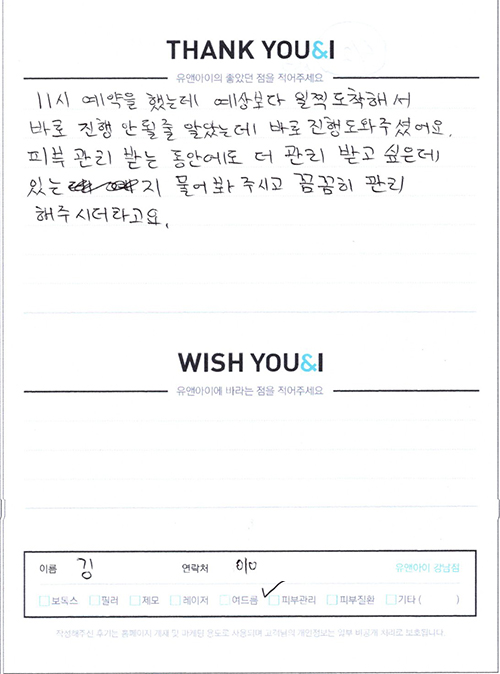 THANK YOU&I
유앤아이의 좋았던 점을 적어주세요
11시 예약을 했는데 예상보다 일찍 도착해서
바로 진행 안될줄 알았는데 바로 진행도와주셨어요.
피부 관리 받는 동안에도 더 관리 받고 싶은데
있는지 물어봐 주시고 꼼꼼히 관리
해주시더라고요.
WISH YOU&I
유앤아이에 바라는 점을 적어주세요
이름 김 연락처 010 유앤아이 강남점
보톡스 필러 제모 레이저 여드름 피부관리 피부질환 기타 ( )
작성해주신 후기는 홈페이지 게재 및 마케팅 용도로 사용되며 고객님의 개인정보는 일부 비공개 처리로 보호됩니다.